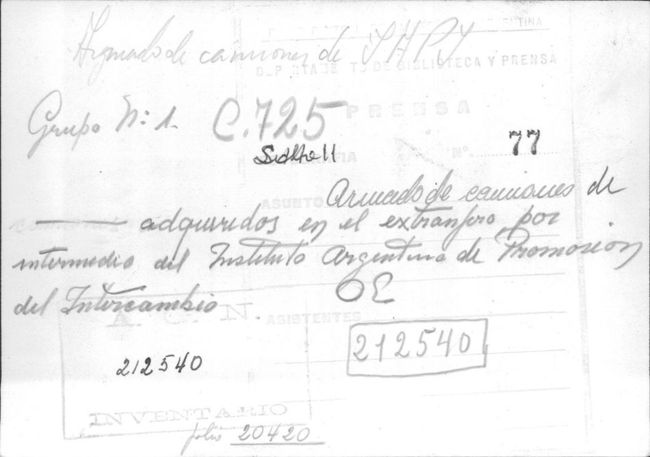 Armado de camiones de
DEPARTAMENTO DE BIBLIOTECA Y PRENSA
Grupo Nº: 1. C. 725
PRENSA
Nº 77
ASUNTO Armado de camiones de
——— adquiridos en el extranjero por
intermedio del Instituto Argentino de Promoción
del Intercambio
OE
A. G. N. ASISTENTES
212540 212540
INVENTARIO
folio 20420